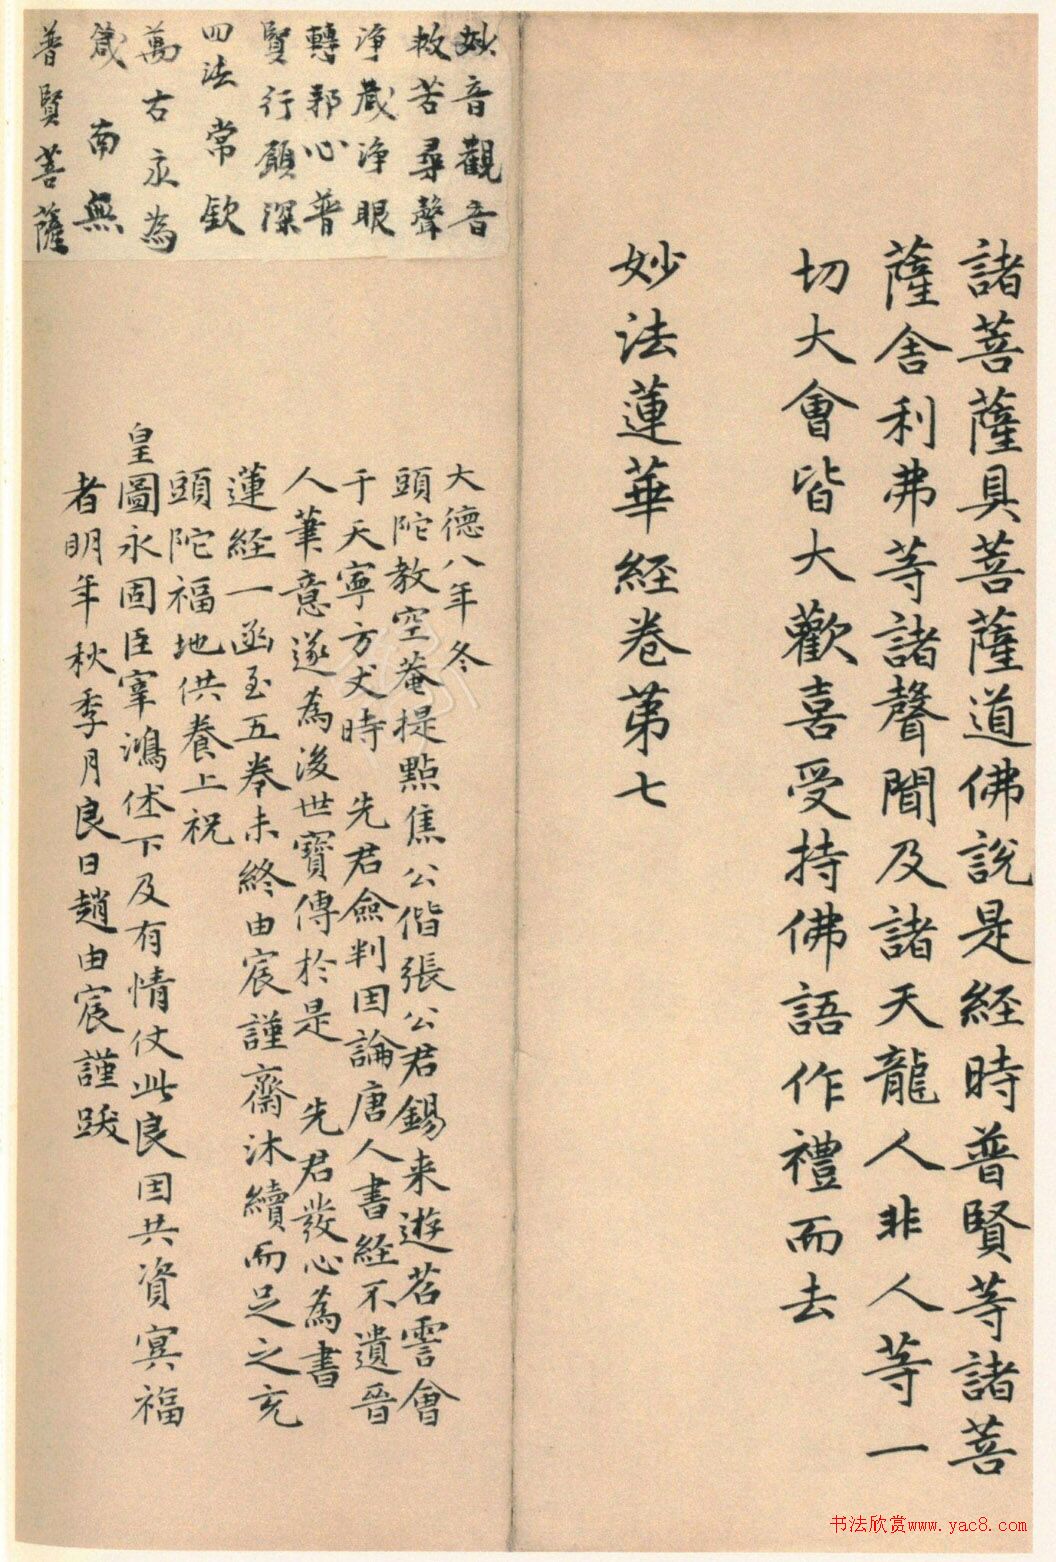 諸菩薩具菩薩道佛說是經時普賢等諸菩
薩舍利弗等諸聲聞及諸天龍人非人等一
切大會皆大歡喜受持佛語作禮而去
妙法蓮華經卷第七
妙音觀音
救苦尋聲
淨藏淨眼
轉邪心普
賢行願深
四法常欽
萬古永為
箴南無
普賢菩薩
大德八年冬
頭陀教空菴提點焦公偕張公君錫来遊苕霅會
于天寧方丈時先君僉判因論唐人書経不遺晉
人筆意遂為後世寶傳於是先君發心為書
蓮経一函至五卷未終由宸謹齋沐續而足之充
頭陀福地供養上祝
皇圖永固臣宰鴻休下及有情仗此良因共資冥福
者明年秋季月良日趙由宸謹跋
书法欣赏www.yac8.com